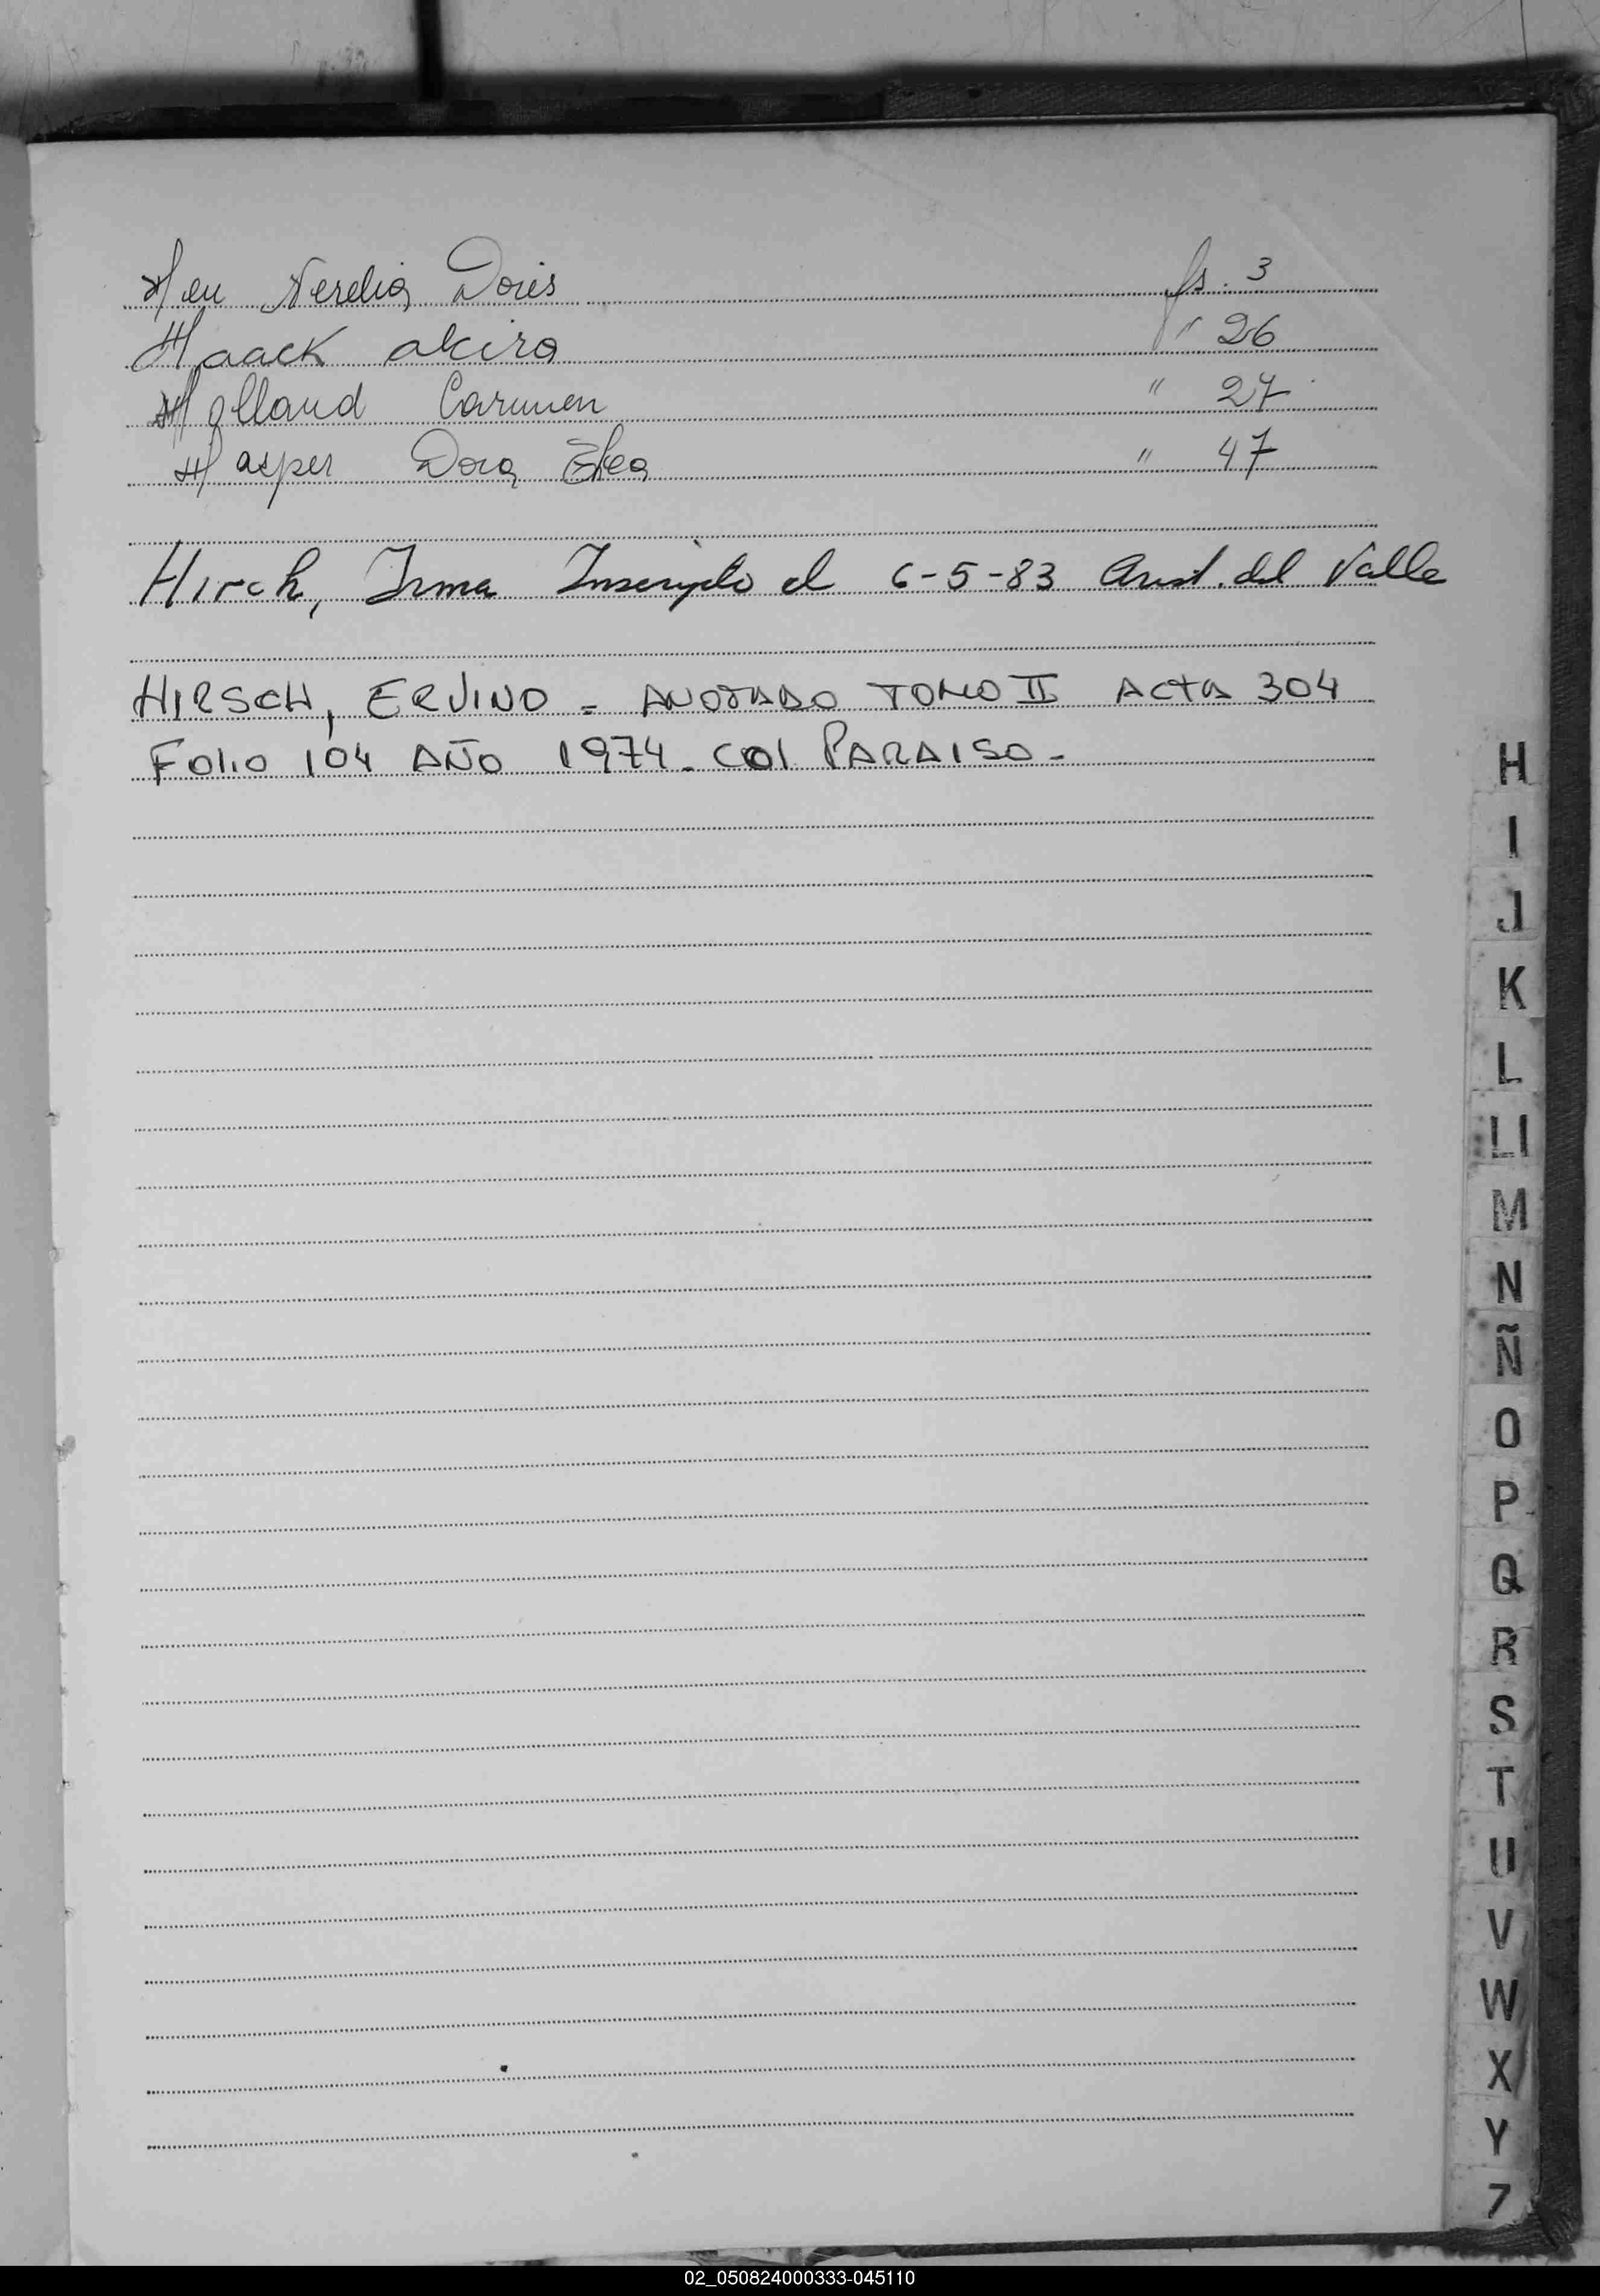 Heu Nerelia Doris fs. 3
Haack Alcira " 26
Holland Carmen " 27
Hasper Dora " 47
Hirch, Irma Inscripto el 6-5-83 Arist. del Valle
HIRSCH, ERVINO = ANOTADO TOMO II ACTA 304
FOLIO 104 AÑO 1974. COL PARAISO -
H
I
J
K
L
Ll
M
N
Ñ
O
P
Q
R
S
T
U
V
W
X
Y
Z
02_050824000333-045110